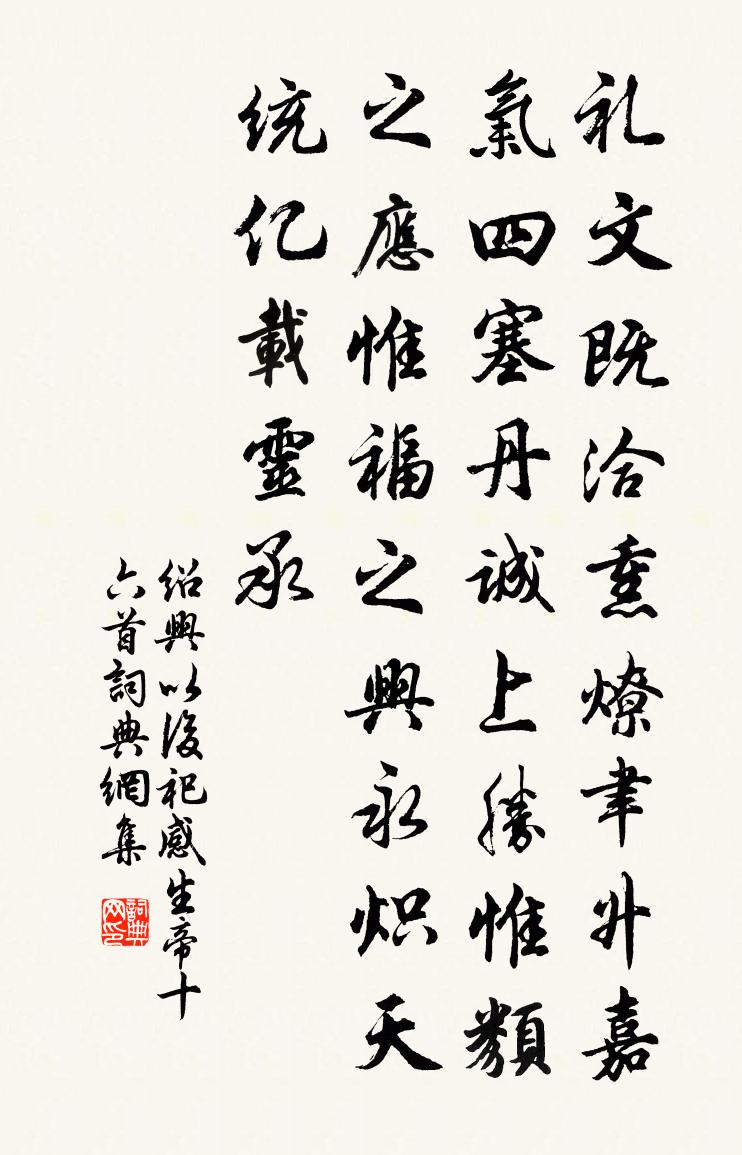 礼文既洽熏燎聿升嘉
氣四塞丹誠上勝惟類
之應惟福之興永炽天
统亿載靈承
绍興以後祀感生帝十
六首詞典網集
詞典网印